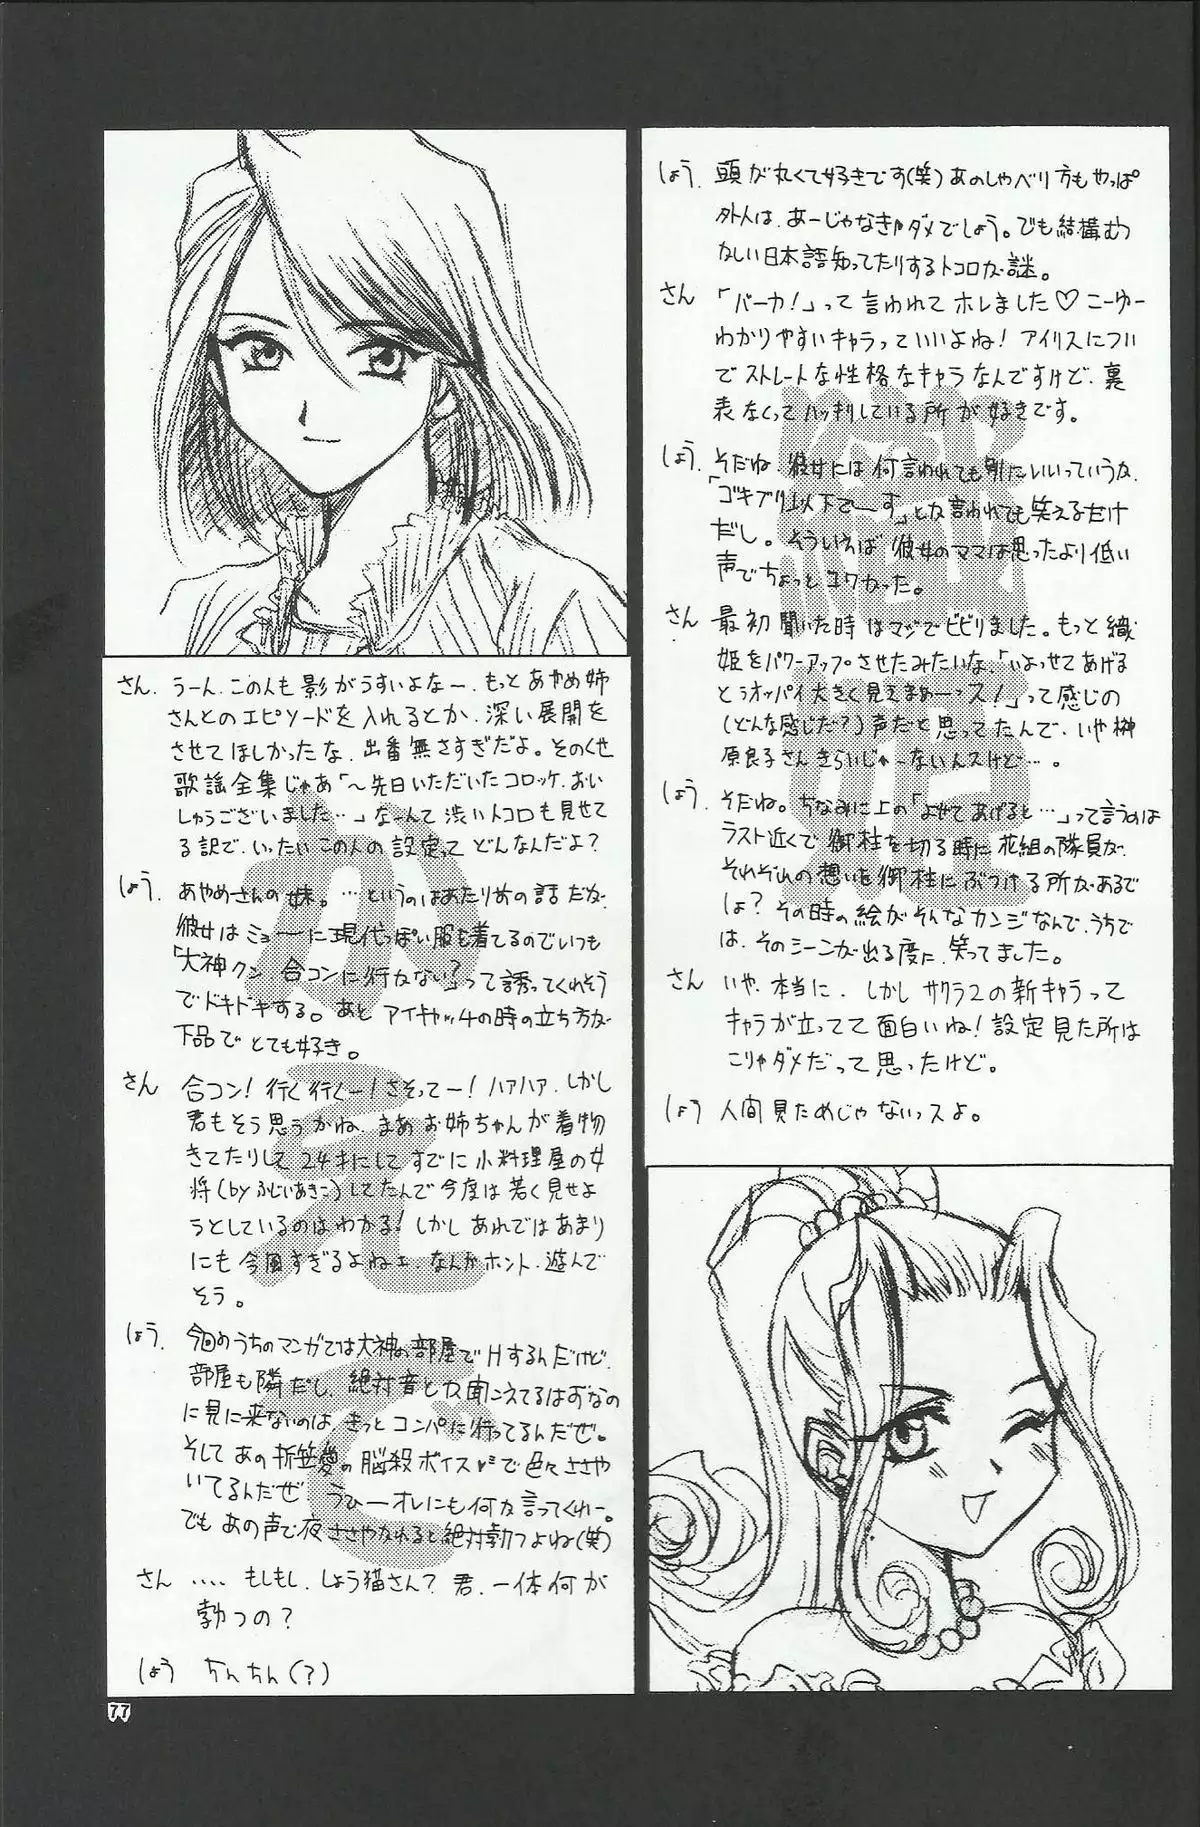 しょう. 頭が丸くて好きです(笑)あのしゃべり方もやっぱ
外人は、あーじゃなきゃダメでしょう。でも結構むつ
かしい日本語知ってたりするトコロが謎。
さん 「バーカ!」って言われてホレました♡こーゆー
わかりやすいキャラっていいよね! アイリスについ
でストレートな性格なキャラなんですけど、裏
表なくってハッキリしている所が好きです。
しょう. そだね. 彼女には何言われても別にいいっていうか、
「ゴキブリ以下で〜す」とか言われても笑えるだけ
だし。そういえば彼女のママは思ったより低い
声でちょっとコワかった。
さん 最初聞いた時はマジでビビりました。もっと織
姫をパワーアップさせたみたいな、「いよっせてあげる
とぅオッパイ大きく見えまぁーっス!」って感じの
(どんな感じだ?)声だと思ってたんで、いや榊
原良子さんきらいじゃーないんスけど…。
しょう. そだね。ちなみに上の「よせてあげると…」って言うのは
ラスト近くで御柱を切る時に花組の隊員が、
それぞれの想いを御柱にぶつける所があるで
しょ? その時の絵がそんなカンジなんで、うちで
は、そのシーンが出る度に、笑ってました。
さん いや、本当に、しかしサクラ2の新キャラって
キャラが立ってて面白いね! 設定見た所は
こりゃダメだって思ったけど。
しょう 人間見ためじゃないっスよ。
織姫
さん. うーん、この人も影がうすいよなー、もっとあやめ姉
さんとのエピソードを入れるとか、深い展開を
させてほしかったな、出番無さすぎだよ。そのくせ
歌謡全集じゃあ「〜先日いただいたコロッケ、おい
しゅうございました…」なーんて渋いトコロも見せて
る訳で、いったいこの人の設定ってどんなんだよ?
しょう. あやめさんの妹。…というのはあたり前の話だが、
彼女はミョーに現代っぽい服を着てるのでいつも
「大神クン 合コンに行かない?」って誘ってくれそう
でドキドキする。あと アイキャッチの時の立ち方が
下品で とても好き。
さん 合コン! 行く行くー! さそってー! ハァハァ、しかし
君もそう思うかね、まあお姉ちゃんが着物
きてたりして24才にしてすでに小料理屋の女
将(by ふじいあきこ)してたんで今度は若く見せよ
うとしているのはわかる! しかしあれではあまり
にも今風すぎるよねェ、なんかホント、遊んで
そう。
しょう. 今回のうちのマンガでは大神の部屋でHするんだけど、
部屋も隣だし、絶対音とか聞こえてるはずなの
に見に来ないのは、きっとコンパに行ってるんだぜ。
そしてあの折笠愛の脳殺ボイスで色々ささや
いてるんだぜ うひーオレにも何か言ってくれー。
でもあの声で夜ささやかれると絶対勃つよね(笑)
さん …. もしもし、しょう猫さん? 君、一体何が
勃つの?
しょう ちんちん(?)
かえで
77